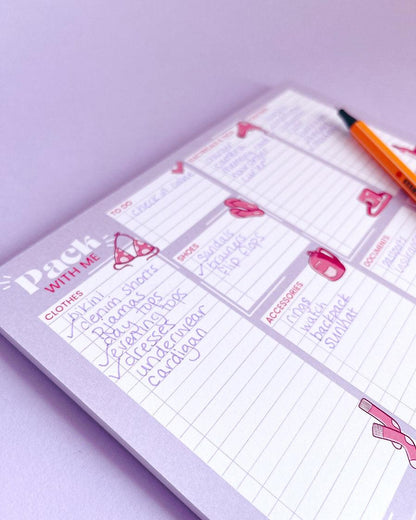 Pack
WITH ME
CLOTHES
bikini
denim shorts
day tops
evening tops
dresses
underwear
cardigan
TO DO
check in online
SHOES
sandals
trainers
flip flops
ACCESSORIES
rings
watch
backpack
sunhat
DOCUMENTS